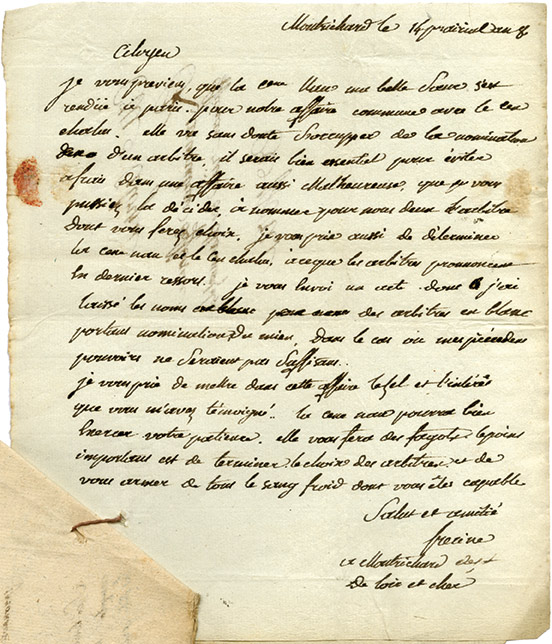 Montrichard le 14 prairial an 8
Citoyen
je vous previens, que la cene Nau ma belle Sœur s'est
rendue à paris pour notre affaire commune avec le cen
chalus. elle va sans doute s'occupper de la nomination
d'un arbitre, il serait bien essentiel pour éviter
a frais dans une affaire aussi Malheureuse, que vous
pussiez la décider, à nommer pour nous deux l'arbitre
dont vous ferez choix. je vous prie aussi de déterminer
la cene nau et le cen chalus, à ce que les arbitres prononcent
En dernier ressort. je vous Envoi un acte dont j'ai
laissé les noms des arbitres en blanc
portant nomination du mien, dans le cas où mes précédens
pouvoirs ne Seraient pas Suffisans.
je vous prie de mettre dans cette affaire le zel et l'intérêt
que vous m'avez témoigné. la cene nau pourra bien
Exercer votre patience. elle vous fera des fagots. le point
important est de terminer le choix des arbitres et de
vous armer de tout le sang froid dont vous êtes capable
Salut et amitié
frecine
a Montrichard dept
de loir et cher